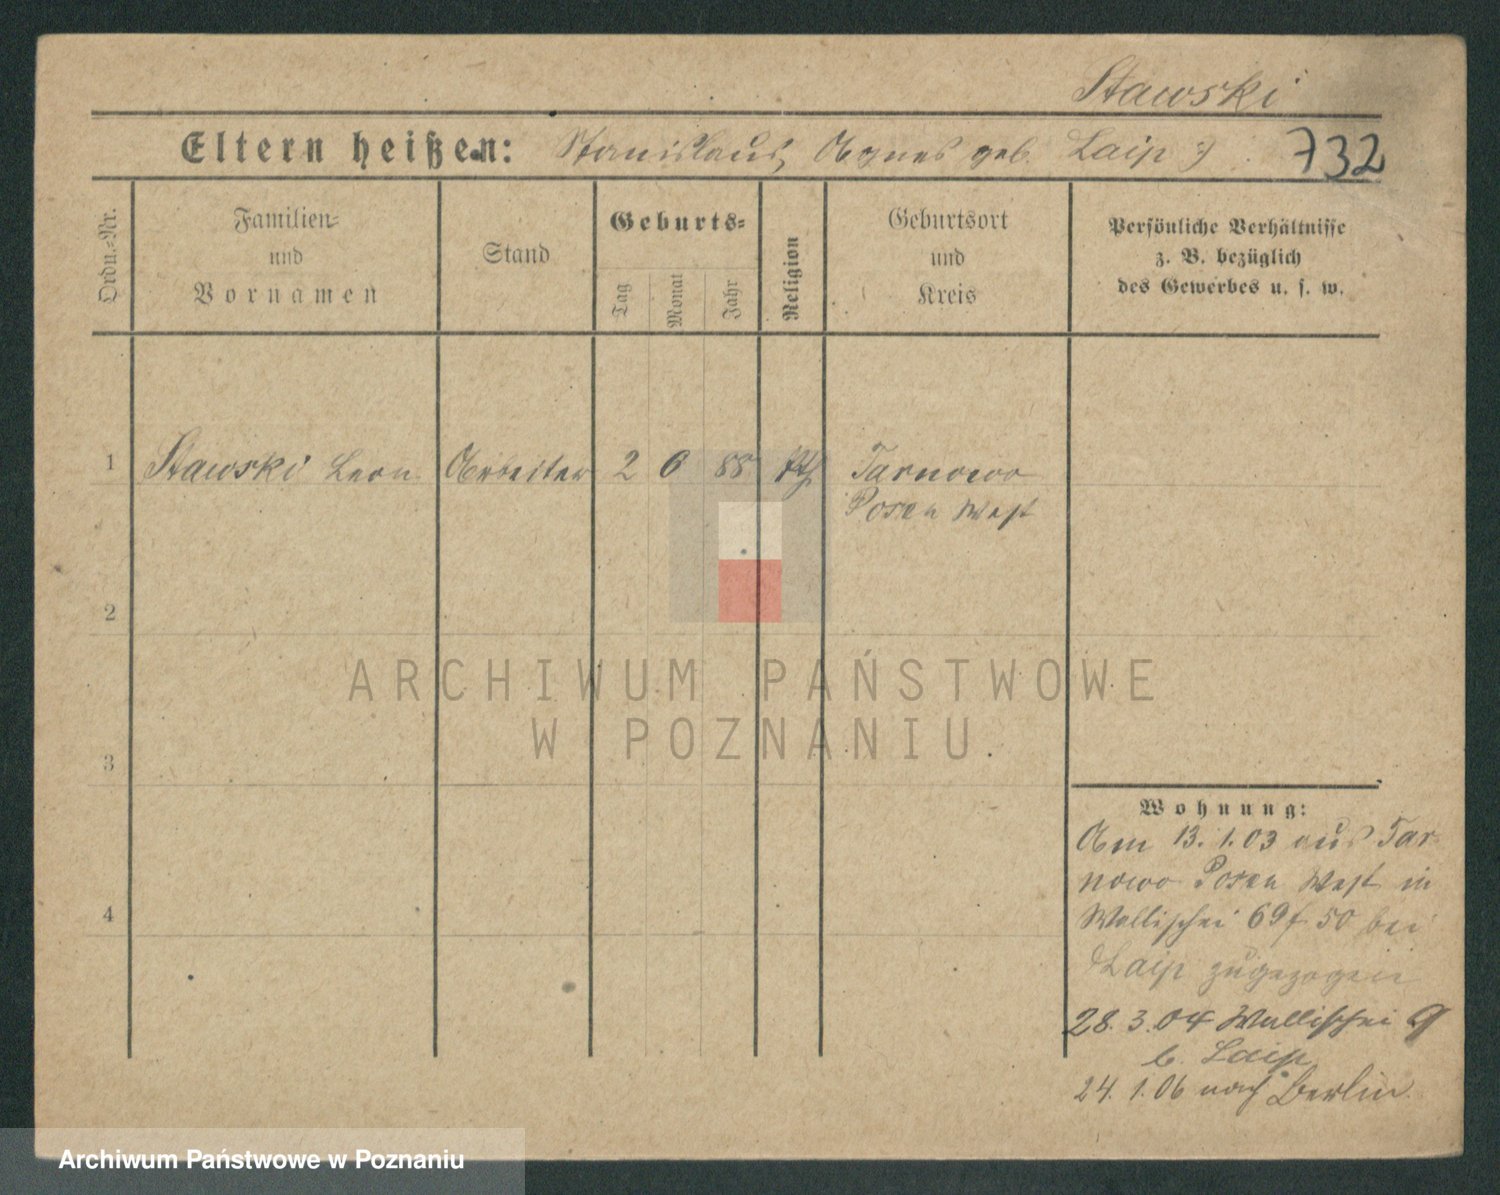 Stawski
Eltern heißen: Stanislaus, Agnes geb. Laip 732
Ordn.-Nr.
Familien-
und
Vornamen
Stand
Geburts-
Tag
Monat
Jahr
Religion
Geburtsort
und
Kreis
Persönliche Verhältnisse
z. B. bezüglich
des Gewerbes u. s. w.
1 Stawski Leon Arbeiter 2 6 88 kth Tarnowo
Posen West
2
3
4
ARCHIWUM PAŃSTWOWE
W POZNANIU
Wohnung:
Am 13. 1. 03 aus Tar
nowo Posen West in
Wallischei 69 50 bei
Laip zugezogen
28. 3. 04 Wallischei 9
b. Laip
24. 1. 06 nach Berlin.
Archiwum Państwowe w Poznaniu